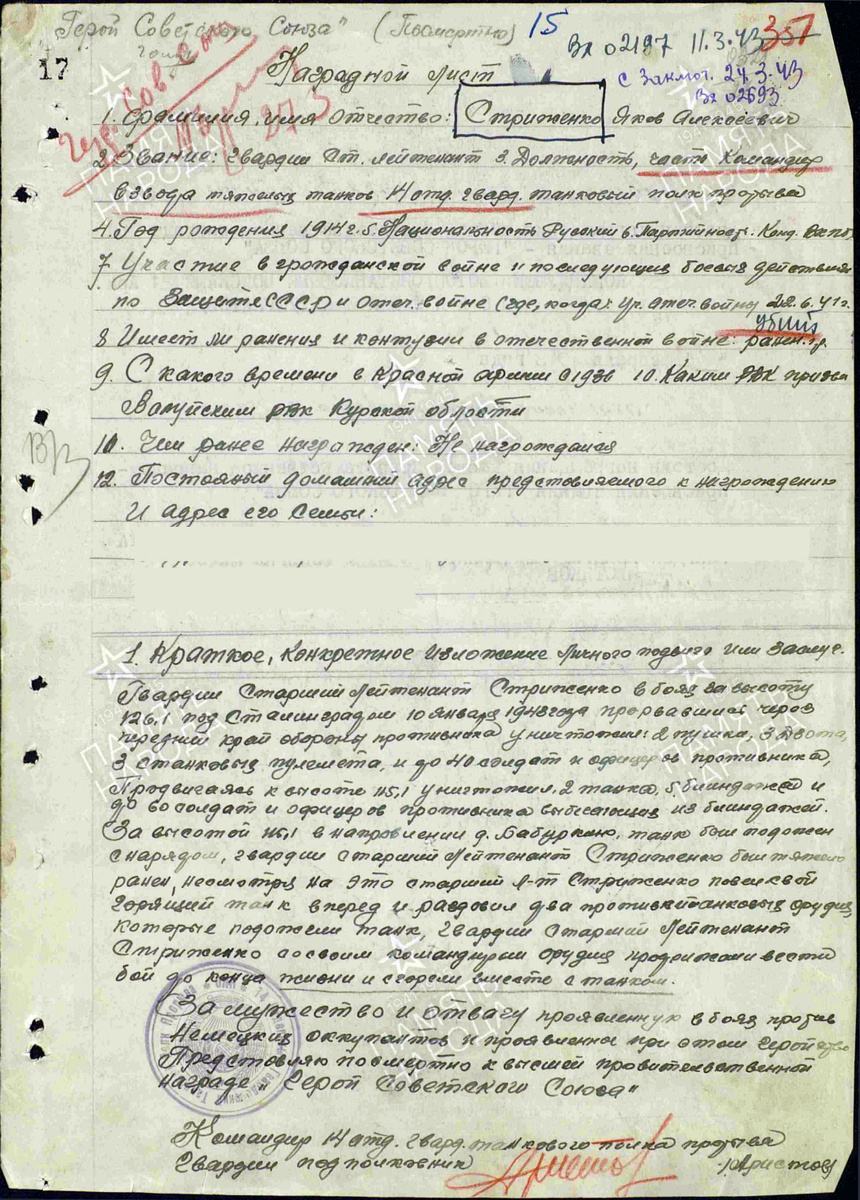 "Герой Советского Союза" (Посмертно) 15
Вх 02197 11.3.43 357
17
Наградной лист
с Заключ. 24.3.43
Вх 02693
Герой Сов Союза
27 3
1. Фамилия, имя Отчество: Стриженко Яков Алексеевич
2. Звание: Гвардии Ст. лейтенант 3. Должность, часть Командир
взвода тяжелых танков 14 отд. гвард. танковый полк прорыва
4. Год рождения 1914 г. 5. Национальность Русский 6. Партийность: Канд. ВКПб
7. Участие в гражданской войне и последующих боевых действиях
по Защите СССР и отеч. войне (где, когда: Уч. отеч. войны 22.6.41 г.
убит
8. Имеет ли ранения и контузии в отечественной войне:
9. С какого времени в Красной армии с 1936 10. Каким РВК призван
Валуйским РВК Курской области
11. Чем ранее награжден: Не награждался
В/3
12. Постояный домашний адрес представляемого к награждению
И адрес его Семьи:
1. Краткое, Конкретное изложение личного подвига или заслуг.
Гвардии Старший Лейтенант Стриженко в боях за высоту
126,1 под Сталинградом 10 января 1943 года прорвавшись через
передний край обороны противника уничтожил: 2 пушки, 3 Дзота,
3 станковых пулемета, и до 40 солдат и офицеров противника,
Продвигаясь к высоте 115,1 уничтожил, 2 танка, 5 блиндажей и
до 80 солдат и офицеров противника выбегающих из блиндажей.
За высотой 115,1 в направлении д. Бабуркино, танк был подожен
снарядом, гвардии старший Лейтенант Стриженко был тяжело
ранен, несмотря на это старший л-т Стриженко повел свой
горящий танк вперед и раздавил два противотанковых орудия,
которые подожгли танк, гвардии Старший Лейтенант
Стриженко со своим командиром орудия продолжали вести
бой до конца жизни и сгорели вместе с танком.
За мужество и отвагу проявленную в боях против
Немецких оккупантов и проявленный при этом Геройство
Представляю посмертно к высшей правительственной
награде „Герой Советского Союза"
Командир 14 отд. гвард. танкового полка прорыва
Гвардии подполковник
ПАМЯТЬ НАРОДА
ПАМЯТЬ НАРОДА
ПАМЯТЬ НАРОДА
ПАМЯТЬ НАРОДА
ПАМЯТЬ НАРОДА
ПАМЯТЬ НАРОДА
ПАМЯТЬ НАРОДА